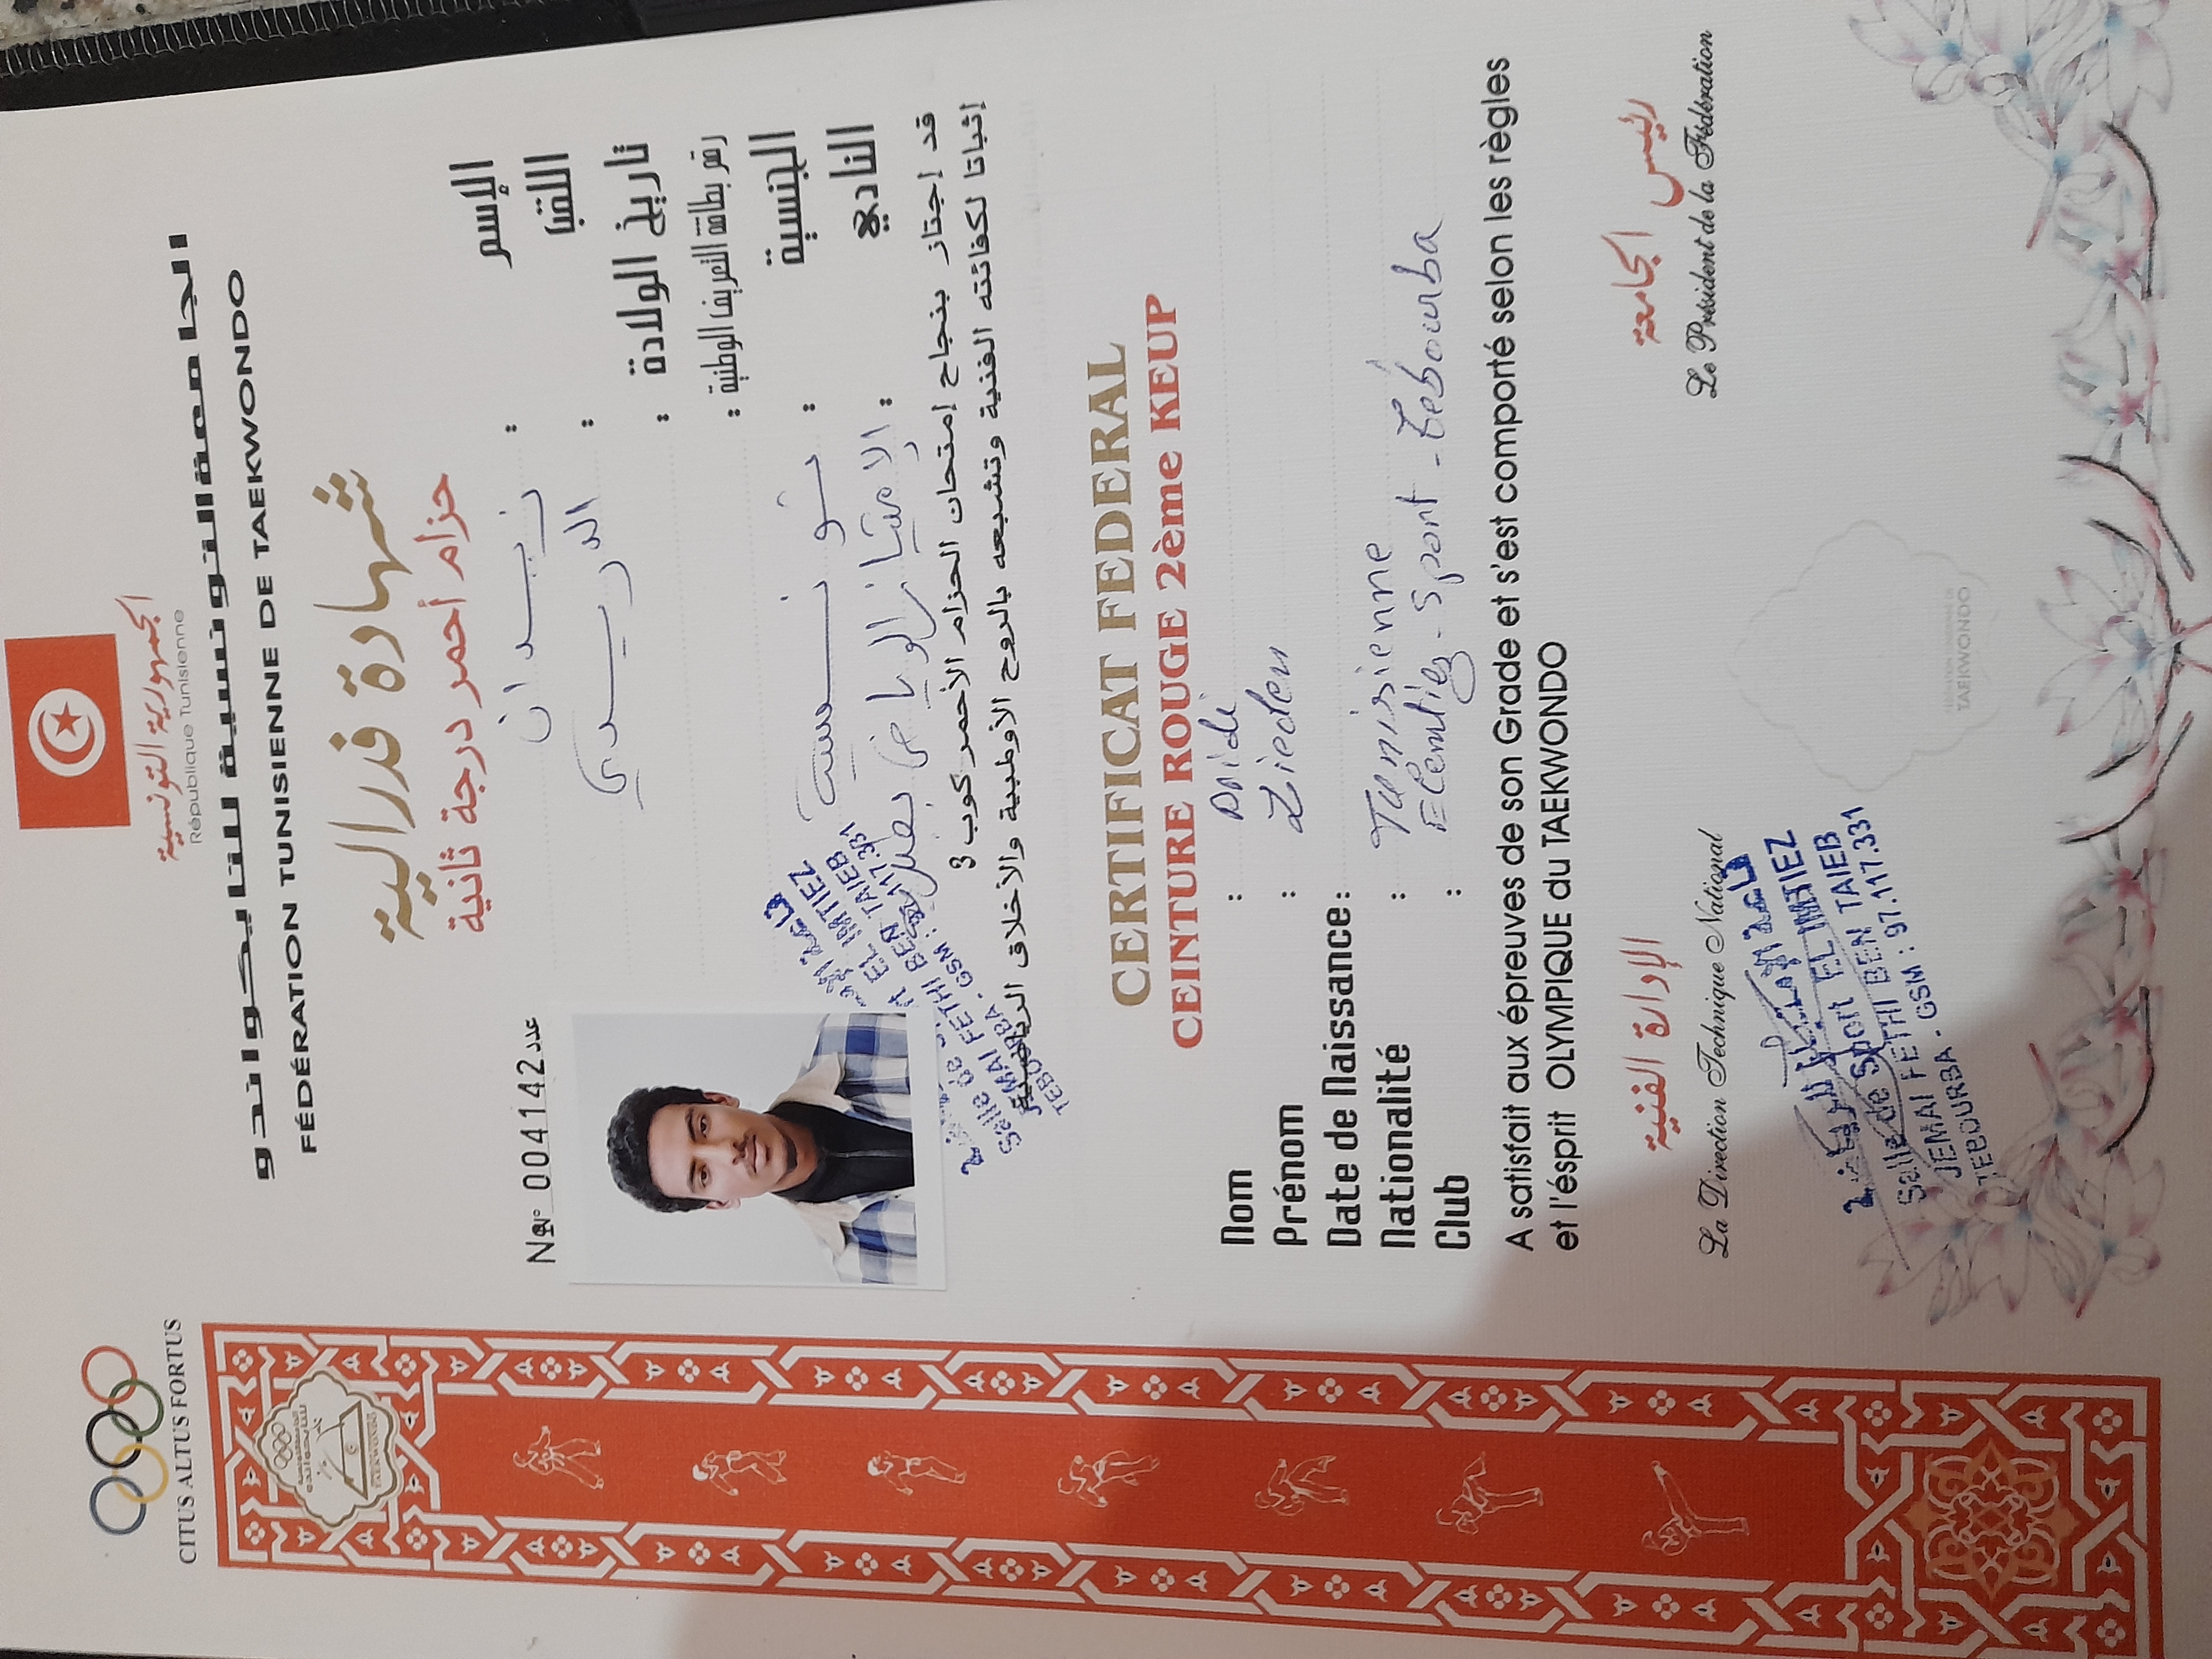 CITUS ALTUS FORTUS
الجمهورية التونسية
République Tunisienne
الجامعة التونسية للتايكواندو
FÉDÉRATION TUNISIENNE DE TAEKWONDO
شهادة فدرالية
حزام أحمر درجة ثانية
Nº 004142 عدد
الإسم : زيدان
اللقب : الدريدي
تاريخ الولادة :
رقم بطاقة التعريف الوطنية :
الجنسية : تونسية
النادي : الامتياز الرياضي بطبربة
قد إجتاز بنجاح إمتحان الحزام الأحمر كوب 3
إثباتا لكفائته الفنية وتشبعه بالروح الأولمبية والأخلاق الرياضية
EL IMTIEZ
JEMAI FETHI BEN TAIEB
TEBOURBA - GSM : 97.117.331
CERTIFICAT FEDERAL
CEINTURE ROUGE 2ème KEUP
Nom : Dridi
Prénom : Zieden
Date de Naissance :
Nationalité : Tunisienne
Club : Elemtiez - Sport - Tebourba
A satisfait aux épreuves de son Grade et s'est comporté selon les règles
et l'ésprit OLYMPIQUE du TAEKWONDO
الإدارة الفنية
La Direction Technique National
رئيس الجامعة
Le Président de la Fédération
Salle de Sport EL IMTIEZ
JEMAI FETHI BEN TAIEB
TEBOURBA - GSM : 97.117.331
TAEKWONDO